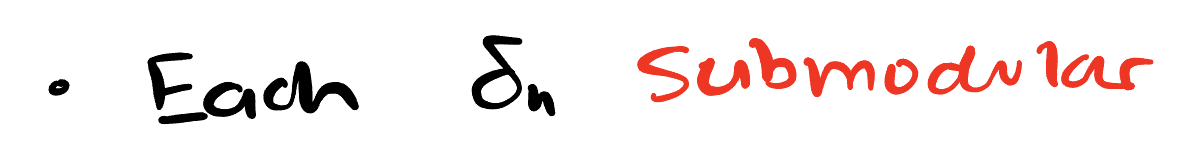 • Each δₙ submodular